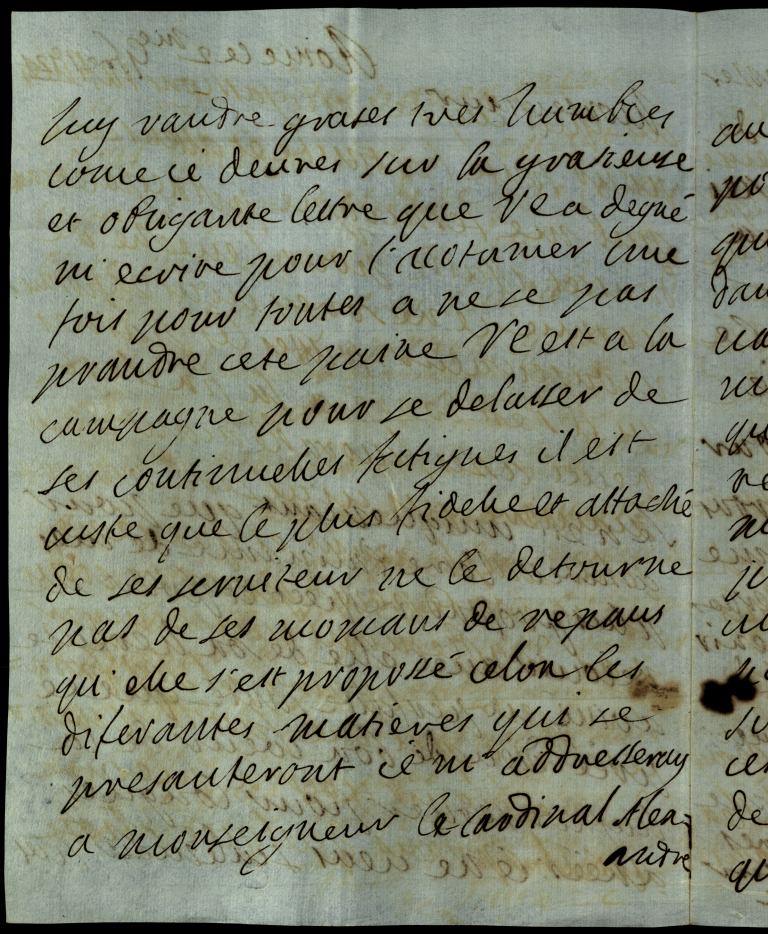 luy randre grases tres humbles
come ie deuves sur la gratieuse
et obligante lettre que Ve a degné
m'ecrire pour l'acotumer une
fois pour toutes a ne se pas
prandre cete paine Ve est a la
campagne pour se delasser de
ses continuelles fatigues il est
iuste que le plus fidelle et attaché
de ses seruiteur ne le detourne
pas de ses momans de repaus
qu'elle s'est propossé celon les
diferantes matieres qui se
presanteront ie m'addresseray
a monseigneur le Cardinal Alea=
andre
au
po
qu
dan
ni
qu
ne
ce
de
qu